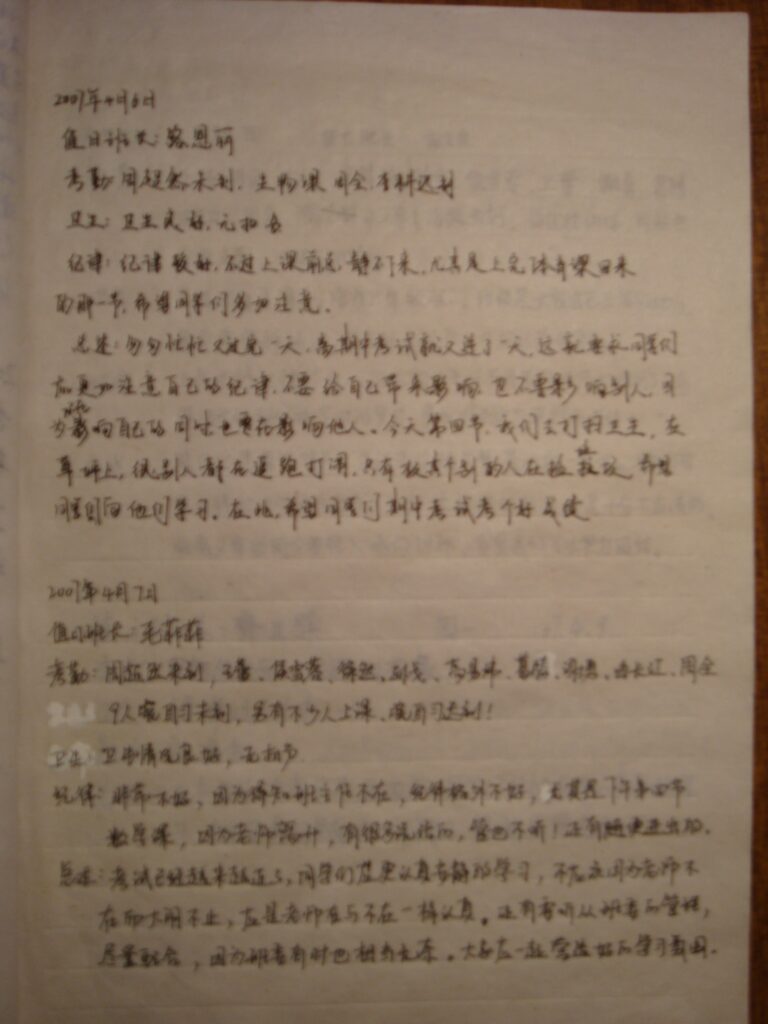 2007年4月6日
值日班长: 恩丽
考勤: 周超然未到. 生物课 周全. 迟到
卫生: 卫生良好. 无扣分
纪律: 纪律较好, 不过上课前总静不下来, 尤其是上完体育课回来
的那一节, 希望同学们多加注意.
总述: 匆匆忙忙又过完一天, 离期中考试就又进了一天, 这就要求同学们
加更加注意自己的纪律, 不要给自己带来影响, 更不要影响别人,
影响自己的同时也要在影响他人。今天第四节, 我们去打扫卫生, 在
草坪上, 很多人都在追跑打闹, 只有极其个别的人在捡, 希望
同学们向他们学习. 在此, 希望同学们期中考试考个好成绩
2007年4月7日
值日班长: 毛菲菲
考勤: 周超然未到, 王, 周全
9人晚自习未到, 另有不少人上课、晚自习迟到!
卫生: 卫生情况良好, 无扣分.
纪律: 非常不好, 因为得知班主任不在, 纪律格外不好, 尤其是下午第四节
数学课, 因为老师, 有很多说话的, 管也不听! 还有随便进出的.
总述: 考试已经越来越近了, 同学们应更认真的学习, 不应该因为老师不
在而大闹不止, 应是老师在与不在一样认真。还有要听从班委的管理,
尽量配合, 因为班委有时也相当无奈。大家应一起营造好的学习氛围.